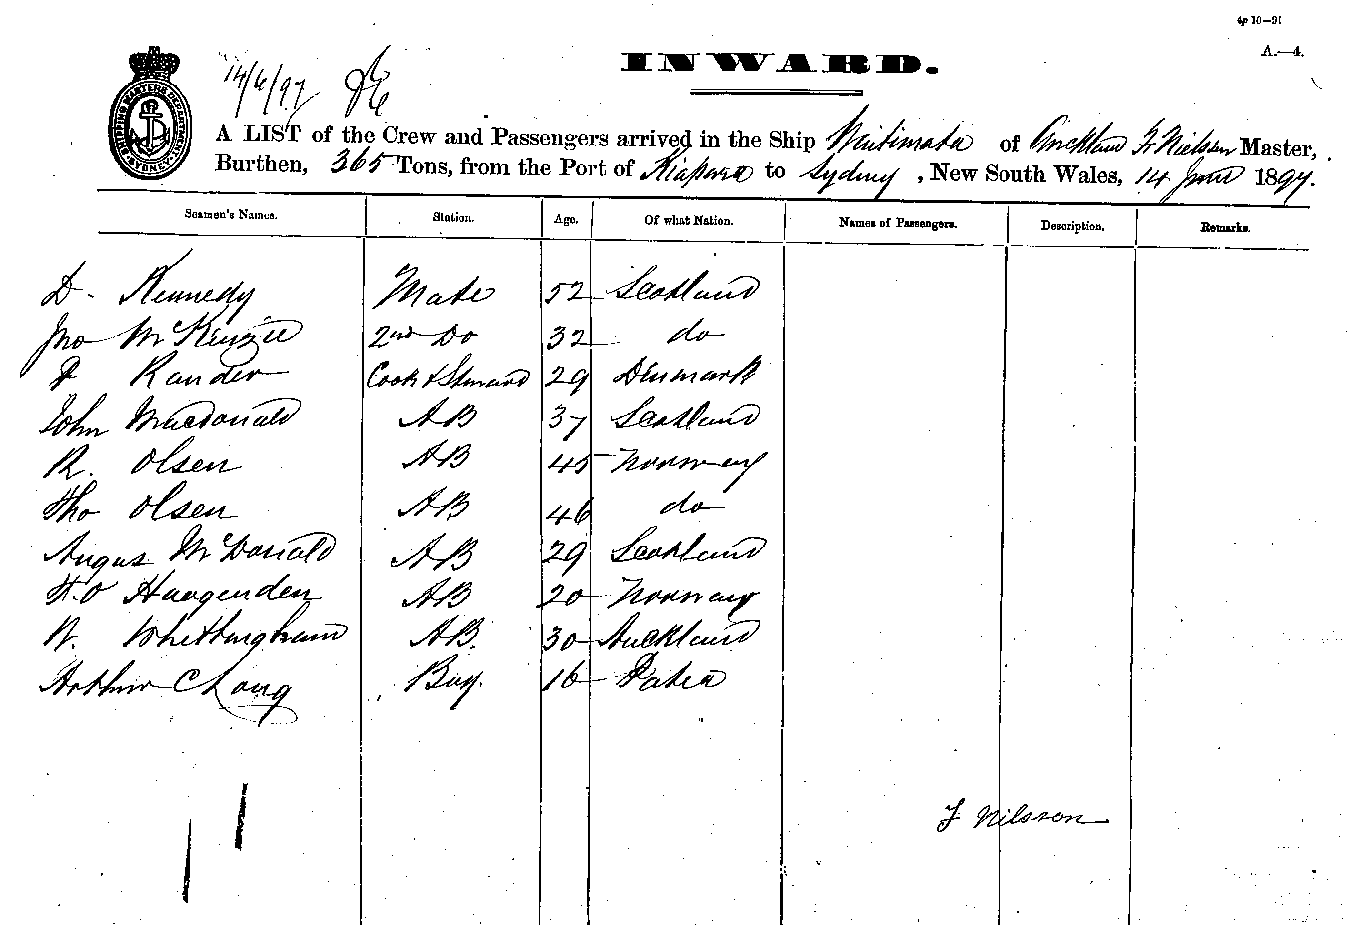 4p 10—91
A.—4.
INWARD.
14/6/97
SHIPPING MASTERS DEPARTMENT SYDNEY
A LIST of the Crew and Passengers arrived in the Ship Waitemata of Auckland F Nielsen Master,
Burthen, 365 Tons, from the Port of Kiapara to Sydney, New South Wales, 14 June 1897.
Seamen's Names. Station. Age. Of what Nation. Names of Passengers. Description. Remarks.
D. Kennedy Mate 52 Scotland
Jno McKenzie 2nd Do 32 do
Rander Cook & Steward 29 Denmark
John Macdonald AB 37 Scotland
R. Olsen AB 45 Norway
Tho Olsen AB 46 do
Angus McDonald AB 29 Scotland
H.O Haagenden AB 20 Norway
W. Whittingham AB. 30 Auckland
Arthur C Long Boy. 16 Patea
F Nilsson